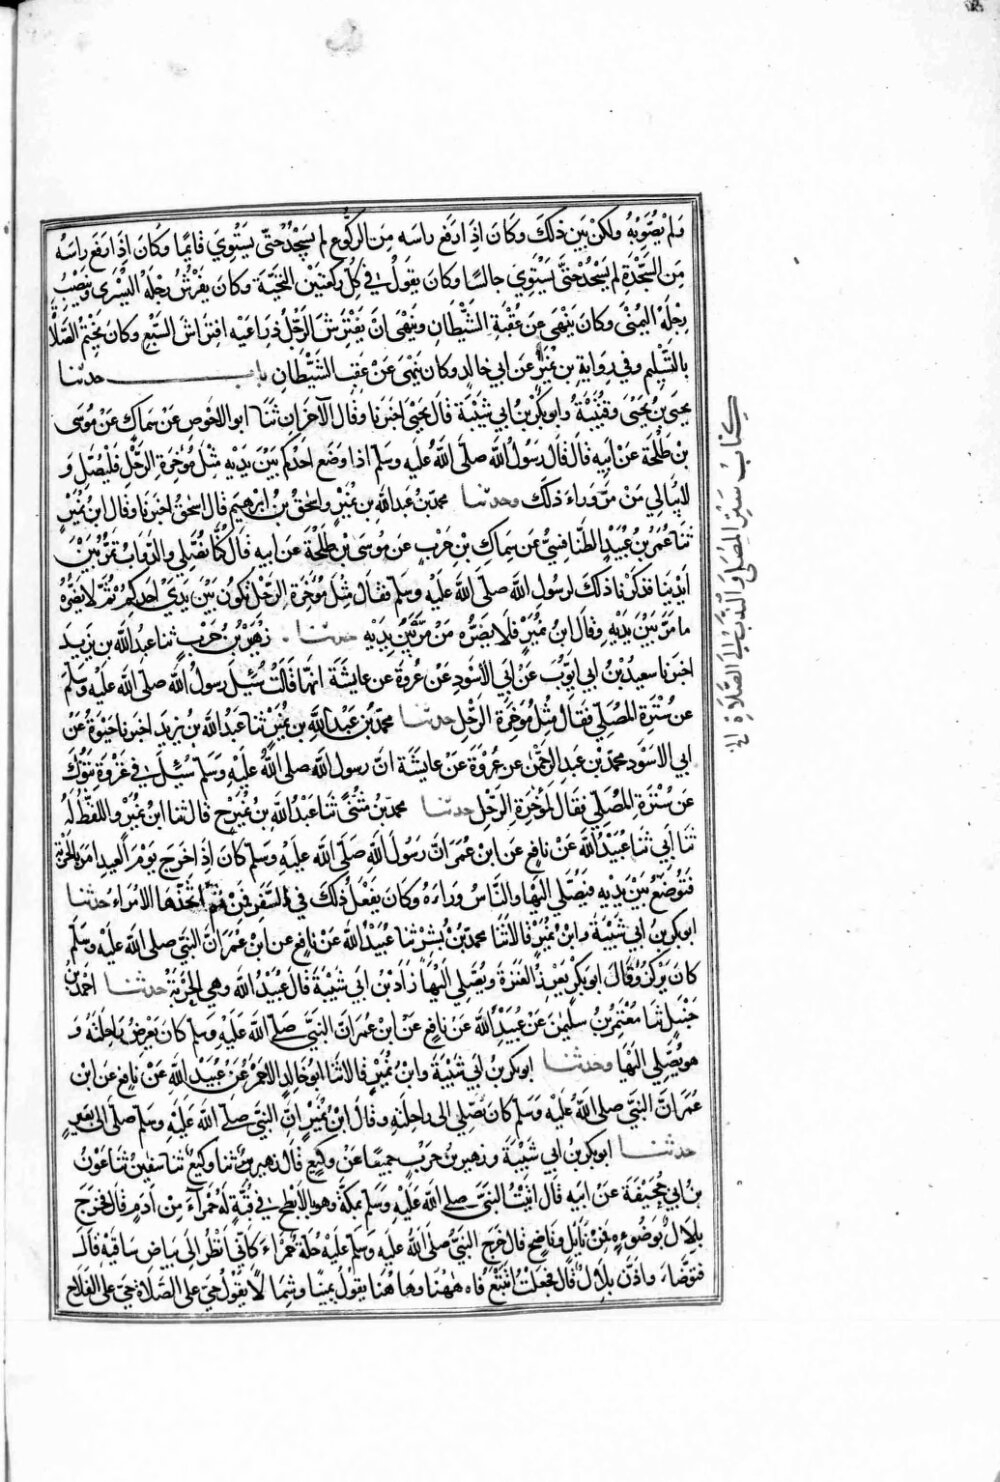 وَلم يُصَوّبهُ ولكن بَين ذلكَ وكَانَ اذَا رفع راسه مِنَ الركُوع لم يَسجُدْ حتّى يَسْتوي قايمًا وكانَ اذَا رفعَ راسَهُ
مِنَ السَّجْدَةِ لم يَسْجُدْ حتَّى يَسْتَوي جالسًا وكانَ يقولُ في كلِّ ركعَتَينِ التحيَّةَ وكانَ يفرْشُ رجْلهُ اليُسْرى وينصِبُ
رِجْلَهُ اليُمْنى وكانَ ينْهَى عن عُقبَةِ الشَّيْطانِ وينْهَى انَ يفْتَرشَ الرّجُلُ ذِرَاعَيْه افتِراشَ السَّبُعِ وكان يَختِمُ الصَّلاةَ
بالتسْلِيم وفي رِوايَة بن نُمَيْر عَن ابي خالدٍ وكان يَنهَى عَنْ عَقِبِ الشَّيْطَانِ باب حدثنا
يحيَى بنُ يَحيَى وقُتَيْبَةُ وابُوبكرِ بْنُ ابي شَيْبَةَ قالَ يحْيَى اخبَرنا وقَال الآخَرانِ ثَنَا ابو الاحْوصِ عَنْ سماكٍ عَنْ مُوسَى
بْن طَلْحَةَ عَنْ ابيهِ قالَ قالَ رَسُولُ اللهِ صلَى اللهُ عليهِ وسَلم اذا وضَعَ احَدُكم بَيْنَ يدَيْهِ مِثْلَ مُؤخِرَةِ الرَّحْلِ فليُصَلِّ وَ
لا يُبالي مَنْ مَرَّ وَرَاءَ ذلكَ وحدثنا محمد بن عَبداللهِ بن نُمَيرٍ واسحقُ بن ابرهيم قال اسحقُ اخبَرنا وقالَ ابنُ نُمَيْرٍ
ثنَا عُمرُ بن عُبَيْدٍ الطنَافِسيُّ عَن سِماكِ بنِ حَرْبٍ عَن مُوسَى بْنِ طَلْحَةَ عَن ابيهِ قالَ كُنَّا نُصَلي والدَّوابُ تَمُرُّ بَيْنَ
ايْدِينا فذكرْنَا ذلكَ لرسُولِ اللهِ صَلَى اللهُ عَليْه وسلم فقَالَ مِثلُ مُؤخِرَةِ الرّحْلِ تكونُ بَيْنَ يَدَيْ احَدِكمْ ثمّ لا يَضُرُّهُ
ما مَرّ بَيْنَ يدَيْهِ وقالَ ابنُ نُمَيْر فلَا يضَرُّه مَنْ مَرَّ بَيْنَ يدَيْهِ حدثنا زُهَيْرُ بْنُ حَرْبٍ ثنا عبدُ اللهِ بن يَزيد
اخبَرنا سعيدُ بْنُ ابي ايّوبَ عَنْ ابي الاسْوَدِ عَنْ عُروَةَ عن عَايشَةَ انها قالتْ سُئِلَ رسولُ اللهِ صلَى الله عليْهِ وسَلمَ
عن سُتْرَةِ المُصَلِّي فقَالَ مِثلُ مُؤخِرَةِ الرَّحْلِ حدثنا محمدُ بْنُ عَبْدِ اللهِ بن نُمَيْرٍ ثنَا عبَدُ اللهِ بن يزيدَ اخبَرنا حَيْوَةُ عَنْ
ابي الاسْوَدِ محمدِ بْنِ عَبدِ الرَّحْمنِ عن عُروَةَ عَنْ عايشَةَ انَّ رسولَ اللهِ صلَى اللهُ عليهِ وسَلم سُئلَ في غَزْوَةِ تَبُوك
عَن سُتْرَةِ المُصَلِّي فقَالَ كمُؤخِرَةِ الرَّحْلِ حدثنا محمد بن مُثَنَّى ثَنَا عَبْدُاللهِ بنُ نُمَيرٍ ح قالَ ثنا ابنُ نُمَيْرٍ واللفْظُ لهُ
ثنَا أبي ثنَا عُبَيْدُ اللهِ عَنْ نافِعٍ عَنِ ابن عُمَرَ انَّ رَسُولَ اللهِ صَلى الله عليْهِ وسَلم كانَ إذَا خرَج يَوْمَ العيدِ امَرَ بالحَرْبَةِ
فتوضَعُ بَيْنَ يديْهِ فيُصَلي اليْهَا والنَّاسُ ورَاءَهُ وكانَ يَفعَلُ ذلكَ في السَّفَر فمِنْ ثمَّ اتخَذهَا الأمَرَاءُ حدثنا
ابوبكرِ بنُ ابي شَيْبَةَ وابْنُ نُمَيْرٍ قالَا ثنا محمدُ بْنُ بِشْرٍ ثنا عُبَيْدُ اللهِ عَنْ نافعٍ عن ابنِ عُمَرَ انَّ النبيَّ صلى اللهُ عليْهِ وسَلم
كانَ يَرْكزُ وقَالَ ابوبَكرٍ يغرِزُ العَنَزَةَ ويُصَلي اليْهَا زَادَ بن ابي شَيْبَةَ قالَ عُبَيْدُ اللهِ وهي الحَرْبَةُ حدثنا احمدُ بنُ
حَنْبَلٍ ثنا مُعْتَمِرُ بنُ سليْمنَ عَنْ عُبَيْدِ اللهِ عَنْ نافعٍ عَنِ ابن عُمَرَ انَّ النبيَّ صَلى اللهُ عَليْهِ وسَلم كانَ يَعْرِضُ رَاحِلتَهُ وَ
هوَ يُصَلي اليْهَا وحدثنا ابوبكرِ بنُ ابي شَيْبَةَ وابْنُ نُمَيْرٍ قالَا ثَنَا ابُوخَالدٍ الاحْمَرُ عَنْ عُبَيْدِ اللهِ عَنْ نافعٍ عَن ابْن
عُمَرَ انَّ النبيَّ صلى اللهُ عليْهِ وسَلم كان يُصَلي الى رَاحِلتهِ وقالَ ابْنُ نُمَيْرٍ انَّ النبيَّ صَلى اللهُ عَليْهِ وسَلم صَلى الى بَعِيرٍ
حدثنا ابوبكربنُ ابي شَيْبَةَ وزهير بن حَرْبٍ جميعًا عَن وكيعٍ قالَ زهيرٌ ثنا وكيعٌ ثنا سفينُ ثنا عَوْنُ
بنُ ابي جُحَيْفَةَ عَنْ ابيهِ قالَ اتيْتُ النبيَّ صلى اللهُ عَليْهِ وسَلم بمكةَ وهو بالابْطحِ في قُبّةٍ لهُ حمْرَاءَ مِنْ ادَمٍ قالَ فخرَجَ
بلالٌ بوَضُوئهِ فمِنْ نايِلٍ ونَاضِحٍ قالَ فخرَجَ النبيُّ صَلى اللهُ عليْهِ وسَلم عليْهِ حُلةٌ حمْرَاءُ كأنّي انظُر الى بَيَاضِ سَاقَيْهِ قالَ
فتوضّأ، واذّنَ بلالٌ قالَ فجعَلتُ اتتبَّعُ فاهُ ههُنا وهَا هُنَا يقولُ يَمينًا وشِمَالًا يقولُ حيَّ على الصَّلاةِ حيَّ على الفلاح
كتاب ستر المصلى